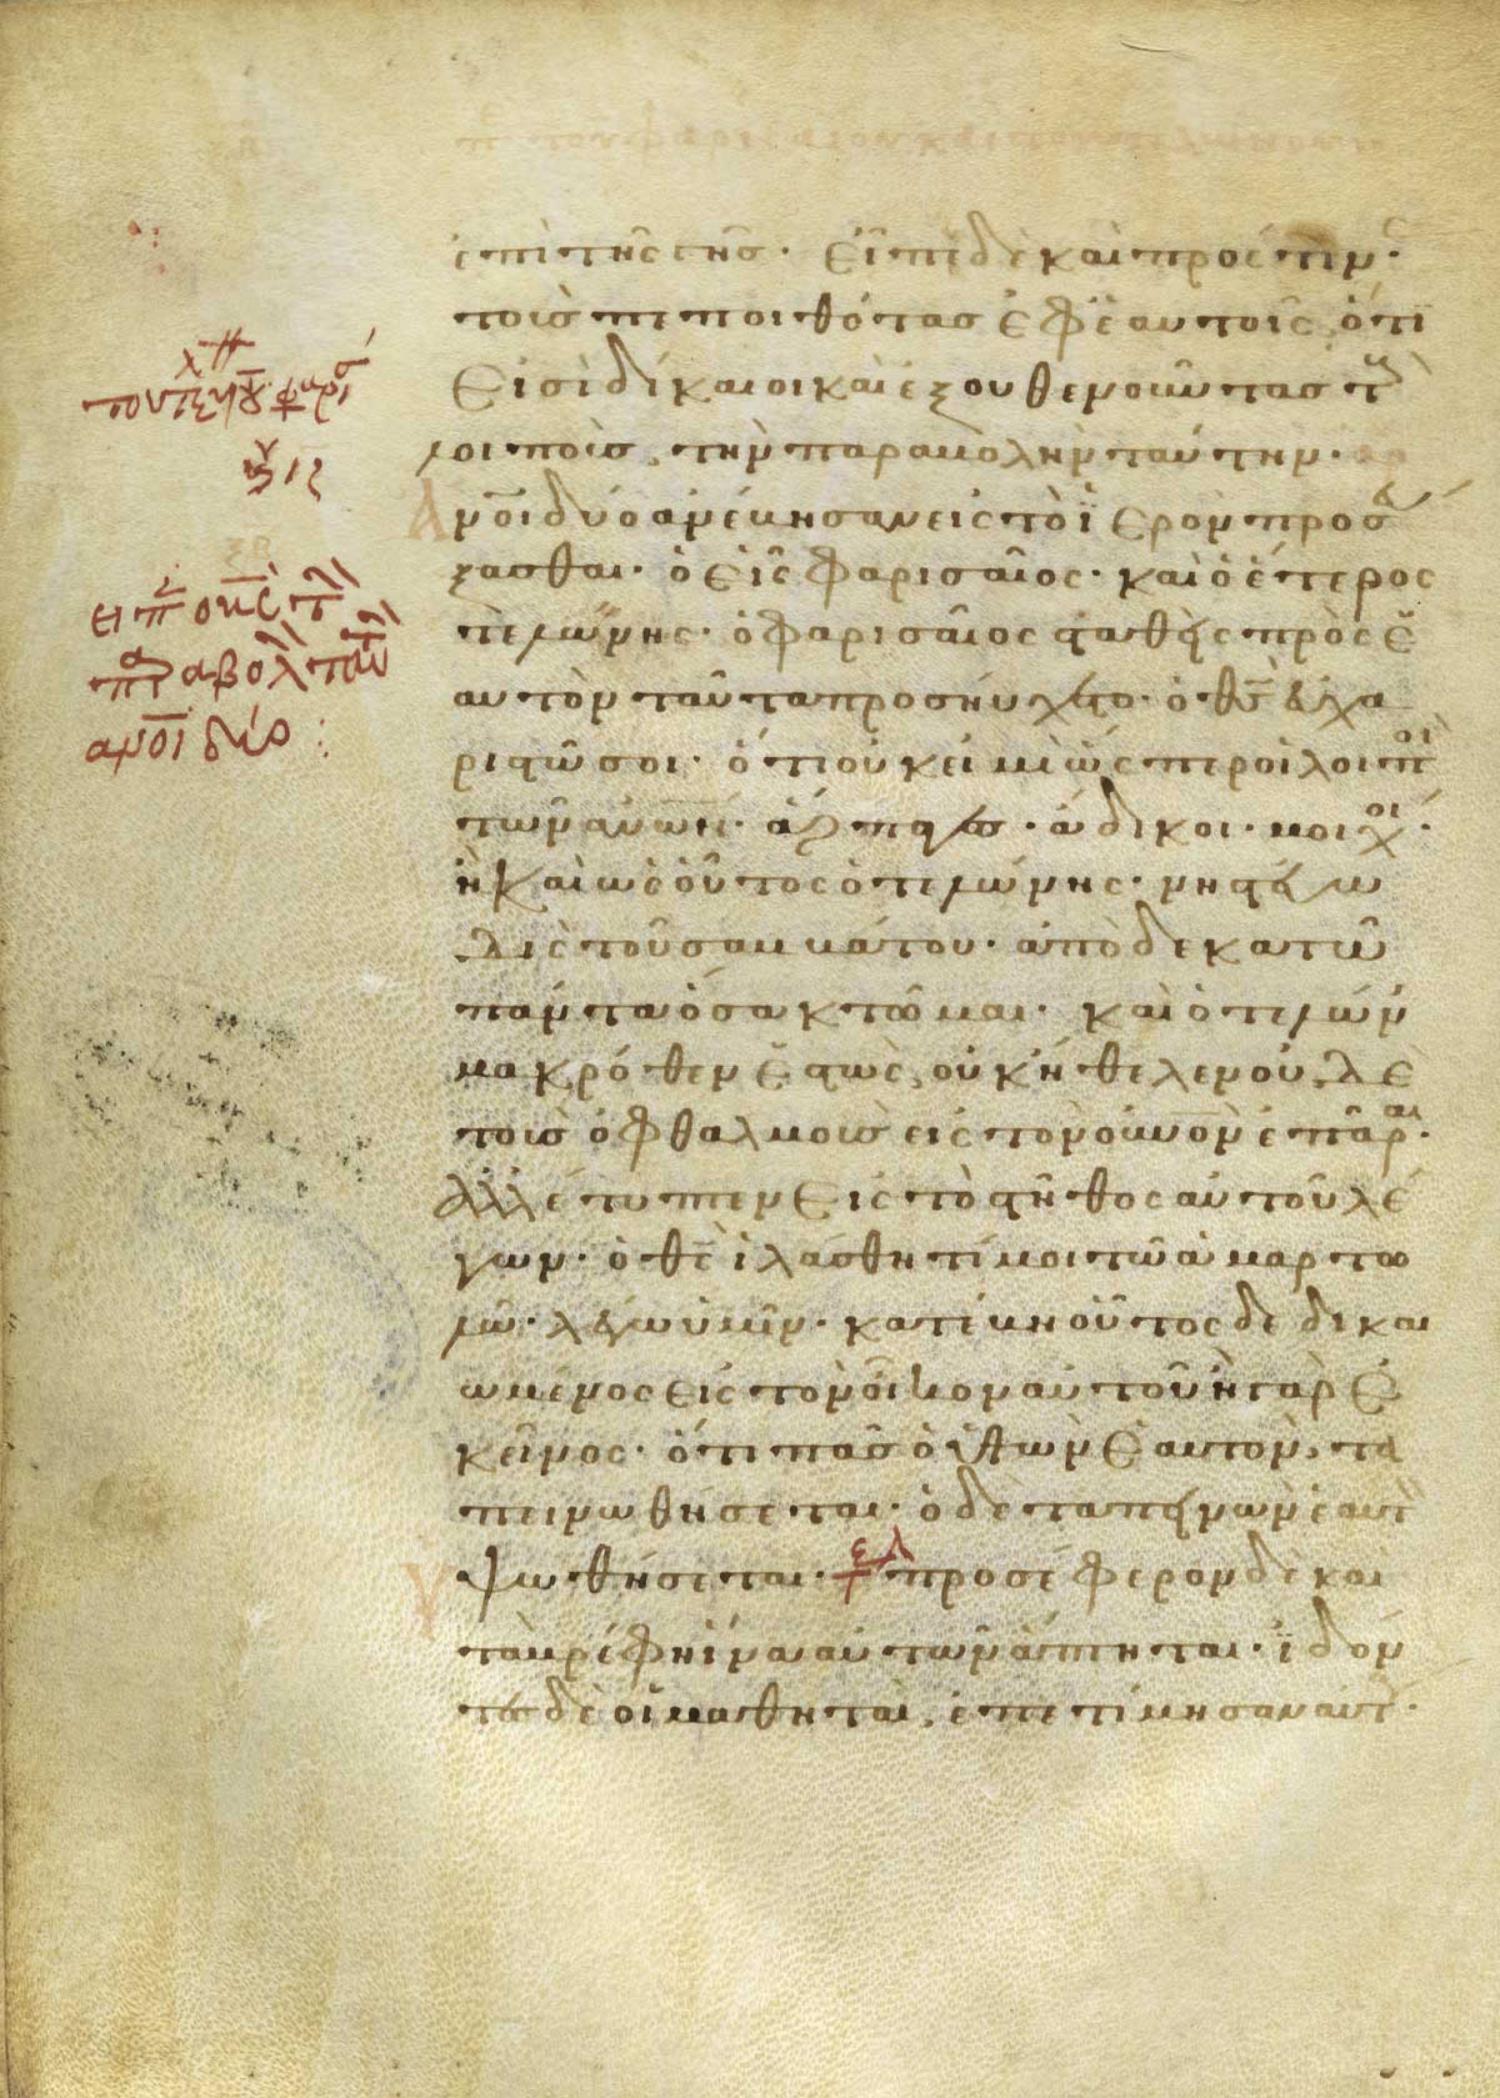 π τὸν φαρισαῖον καὶ τὸν τελώνην
ἐπὶ τῆς γῆς· Εἶπε δὲ καὶ πρός τιν
τοὺς πεποιθότας ἐφ' ἑαυτοῖς, ὅτι
εἰσὶ δίκαιοι καὶ ἐξουθενοῦντας τ
λοιποὺς, τὴν παραβολὴν ταύτην·
Ανοι δύο ἀνέβησαν εἰς τὸ ἱερὸν προσευ
ξασθαι· ὁ εἷς φαρισαῖος· καὶ ὁ ἕτερος
τελώνης· ὁ φαρισαῖος σταθεὶς πρὸς ἑ
αυτὸν ταῦτα προσηύχετο· ὁ θς εὐχα
ριστῶ σοι· ὅτι οὐκ εἰμὶ ὥσπερ οἱ λοιποὶ
τῶν ανων· ἅρπαγες· ἄδικοι· μοιχοί·
ἢ καὶ ὡς οὗτος ὁ τελώνης· νηστεύω
δὶς τοῦ σαββάτου· ἀποδεκατῶ
πάντα ὅσα κτῶμαι· καὶ ὁ τελών
μακρόθεν ἑστὼς, οὐκ ἤθελεν οὐδὲ
τοὺς ὀφθαλμοὺς εἰς τὸν οὐνον ἐπᾶραι·
ἀλλ' ἔτυπτεν εἰς τὸ στῆθος αὐτοῦ λέ
γων· ὁ θς ἱλάσθητί μοι τῶ ἁμαρτω
λῶ· λέγω ὑμῖν· κατέβη οὗτος δεδικαι
ωμένος εἰς τὸν οἶκον αὐτοῦ ἢ γὰρ ἐ
κεῖνος· ὅτι πᾶς ὁ ὑψῶν ἑαυτὸν, τα
πεινωθήσεται· ὁ δὲ ταπεινῶν ἑαυτ
ὑψωθήσεται· προσέφερον δὲ καὶ
τὰ βρέφη ἵνα αὐτῶν ἅπτηται· ἰδόν
τες δὲ οἱ μαθηταὶ, ἐπετίμησαν αὐτ·
ειπ ο κς τ
παραβολ ταυ
ανοι δύο :